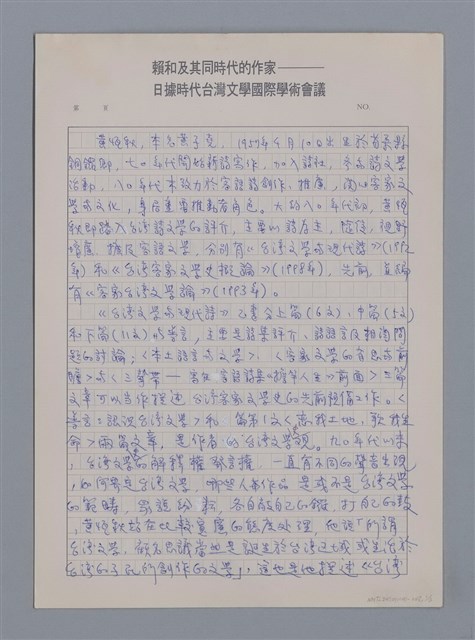 賴和及其同時代的作家
日據時代台灣文學國際學術會議
第 頁
NO.
黃恆秋,本名黃子堯,1957年 月10日出生於苗栗縣
銅鑼鄉,七○年代開始新詩寫作,加入詩社,參與詩文學
活動,八○年代末致力於客語詩創作、推廣,與客家文
學或文化,身居重要推動者角色。大約八○年代初,黃恆
秋即踏入台灣詩文學的評介,主要以詩為主,隨後,視野
擴展客語文學,分別有《台灣文學與現代詩》(1992
年)和《台灣客家文學史概論》(1998年),先前,主編
有《客家台灣文學論》(1993年)。
《台灣文學與現代詩》乙書分上篇(6文)、中篇(5文)
和下篇(11文)的卷言,主要是詩集評介、詩語言及相關問
題的討論;〈本土語言與文學〉、〈客家文學的省思與前
瞻〉與〈三聲帶——客語詩集《擔竿人生》前面〉三篇
文章可以當作撰述台灣客家文學史的先前預備工作。〈
卷言:認識台灣文學〉和 篇第1文〈戀我土地,歌我生
命〉兩篇文章,是作者的台灣文學觀。九○年代以來
,台灣文學的解釋權發言權,一直有不同的聲音出現
,如何界定台灣文學,哪些人和作品是或不是台灣文學
的範疇,眾說紛紜,各自敲自己的鑼,打自己的鼓
,黃恆秋站在比較寬廣的態度處理,他說「所謂
台灣文學,顧名思議當也是誕生於台灣這土地或生活於
台灣的子民的創作的文學」,這也是他撰述《台灣